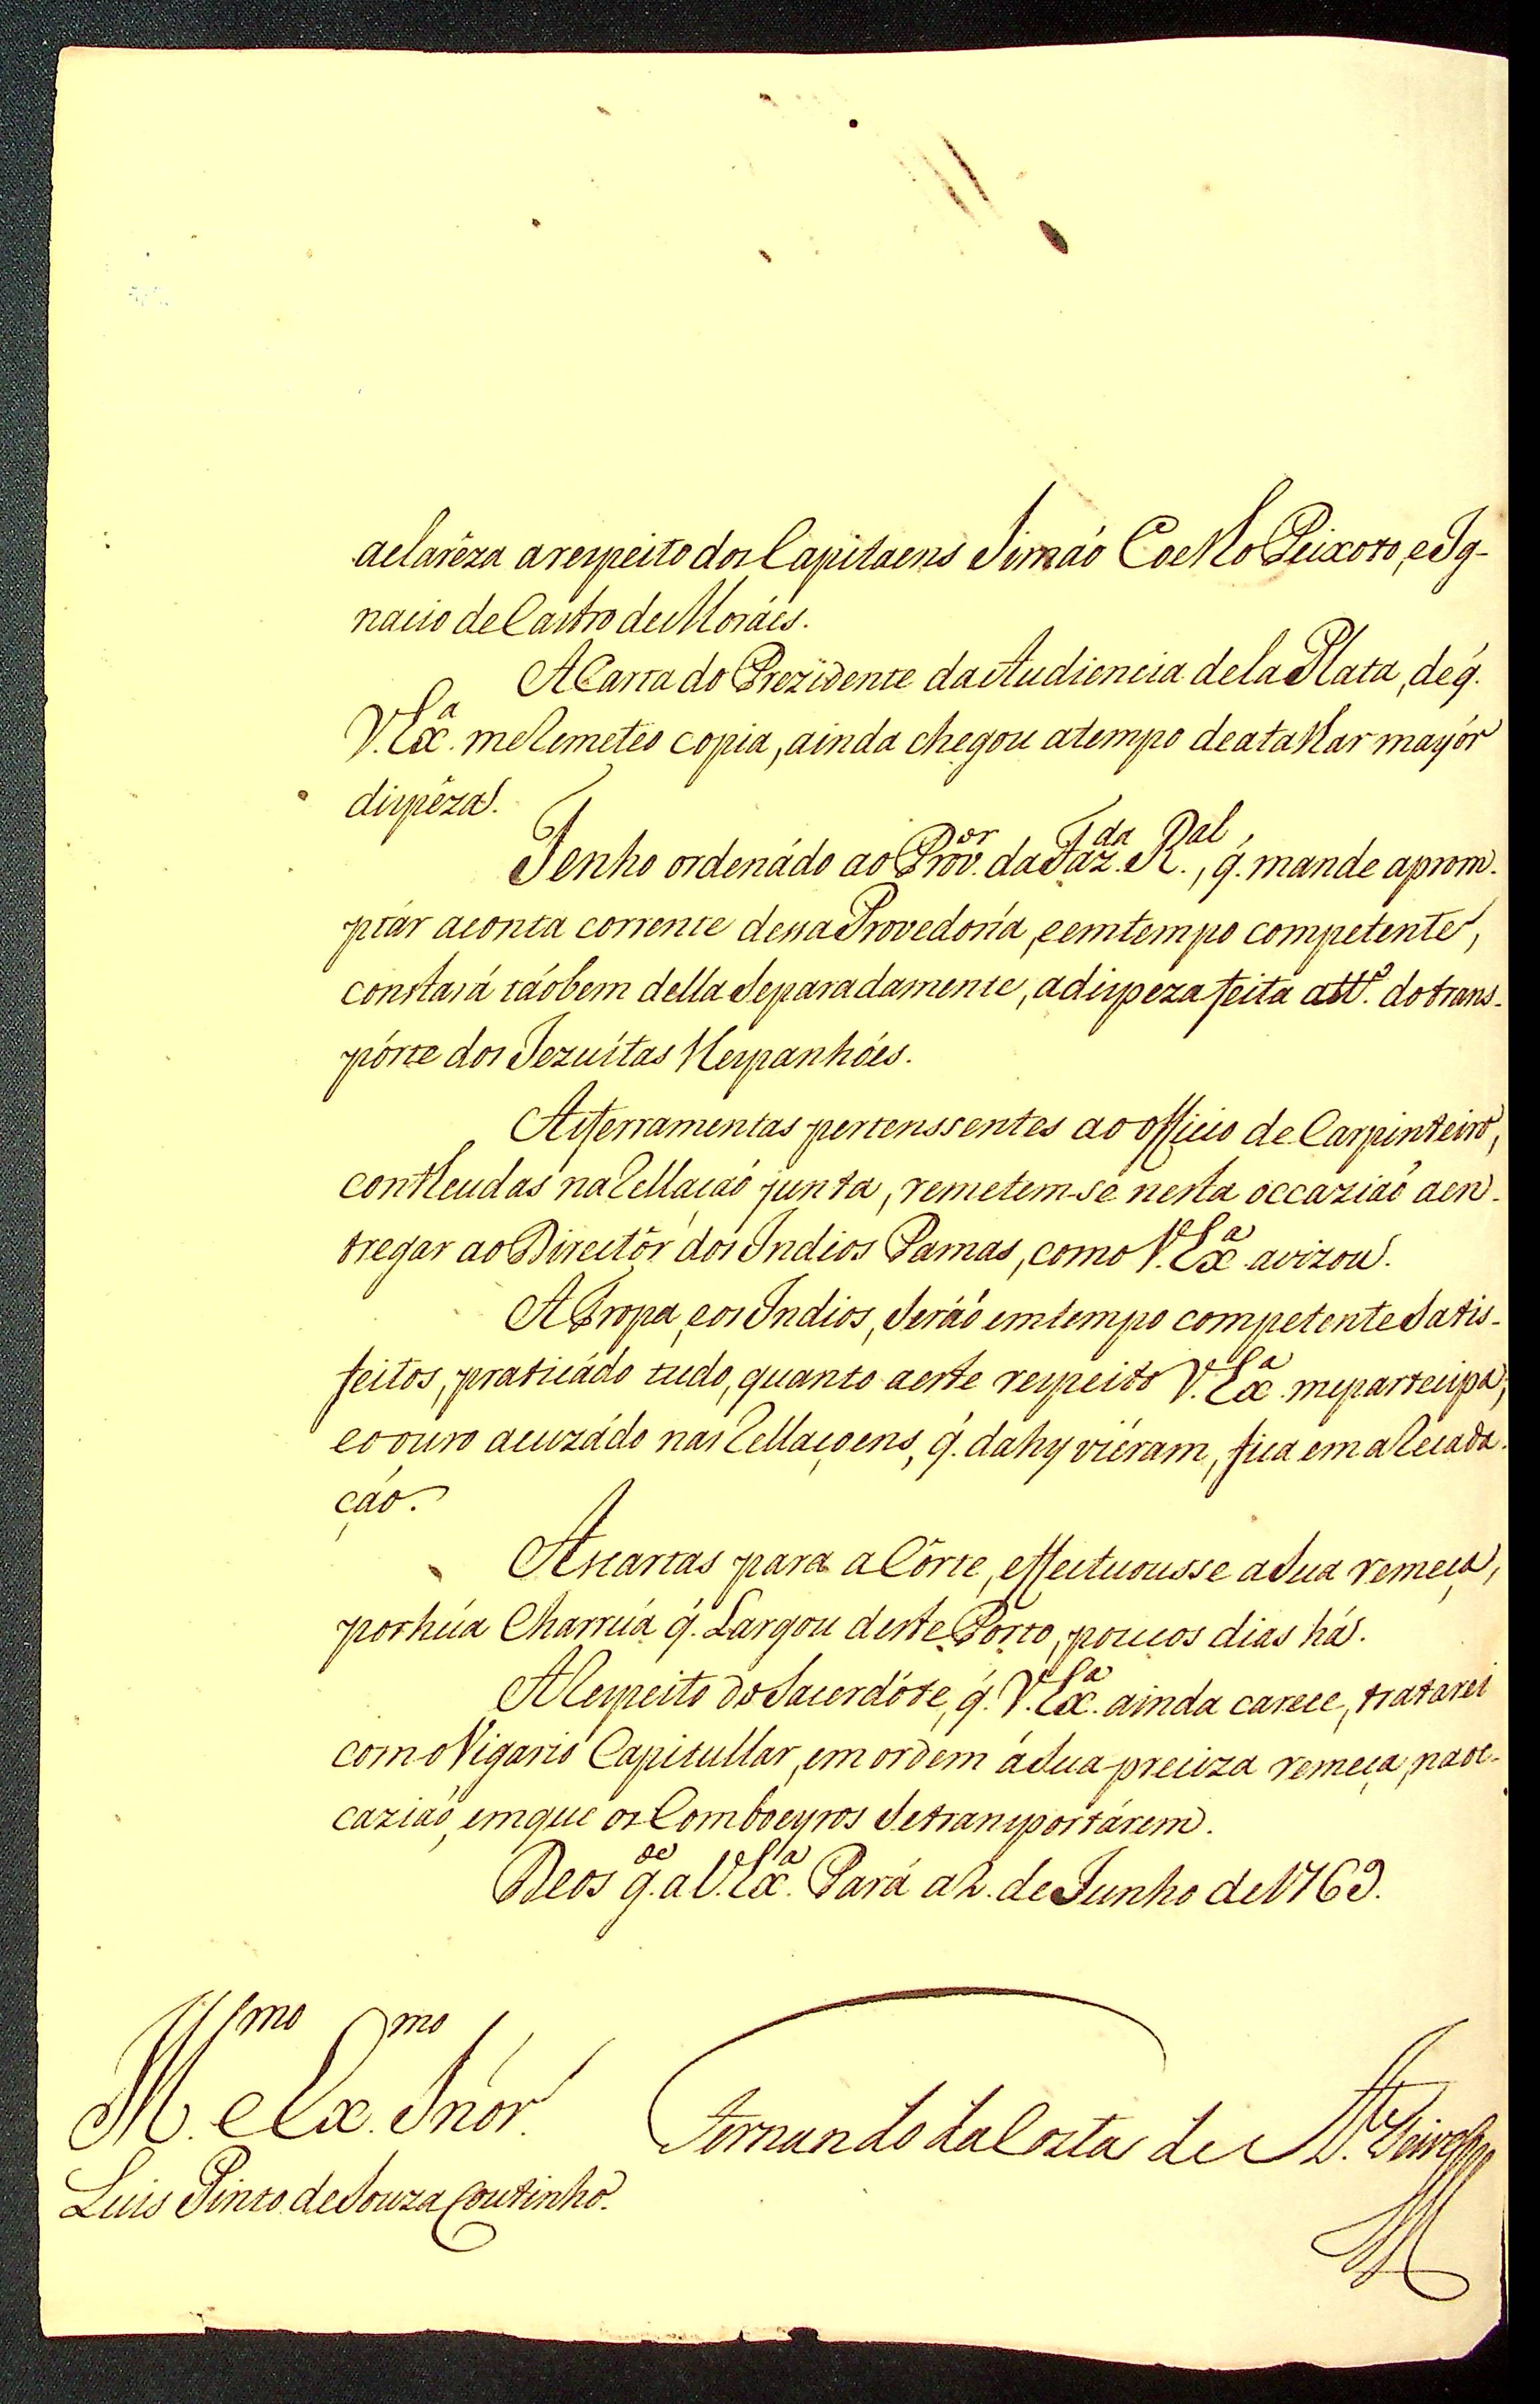 aclarêza arespeito dos Capitaens Simaõ Coelho Peixoto, e Ig-
nacio de Castro de Moráes.
A Carta do Prezidente da Audiencia de la Plata, de q̃.
V. Exª. me Remeteo copia, ainda chegou a tempo de atalhar mayór
dispêza.
Tenho ordenádo ao Prov.or da Faz.da R.al, q̃. mande aprom-
ptár aconta corrente dessa Provedoría, e em tempo competente,
constará tãobem della Separadamente, a dispeza feita att.º do trans-
pórte dos Jezuítas Hespanhóes.
As ferramentas pertenssentes ao officio de Carpinteiro,
contheudas na Rellaçaõ junta, remetem-se nesta occaziaõ a en-
tregar ao Directôr dos Indios Pamas, como V. Exª. avizou.
A Tropa, e os Indios, Seráõ em tempo competente Satis-
feitos, praticádo tudo, quanto a este respeito V. Exª. me partecipa;
e o ouro acuzádo nas Rellaçoens, q̃. dahy viéram, fica em aRecada-
çaõ.
As cartas para a Côrte, effectuousse a Sua remeça,
por hũa Charrúa q̃. Largou deste Porto, poucos dias há.
A Respeito do Sacerdóte, q̃. V. Exª. ainda carece, tratarei
com o Vigario Capitullar, em ordem á Sua preciza remeça, na oc-
caziaõ, em que os Comboeyros Se transportárem.
Deos g.de a V. Exª. Pará a 2. de Junho de 1769.
Ill.mo e Ex.mo Snõr.
Fernando da Costa de At.e Teive
Luis Pinto de Souza Coutinho.